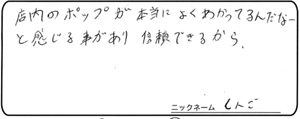 店内のポップが本当によくわかってるんだなー
と感じる事があり 信頼できるから.
ニックネーム しんご